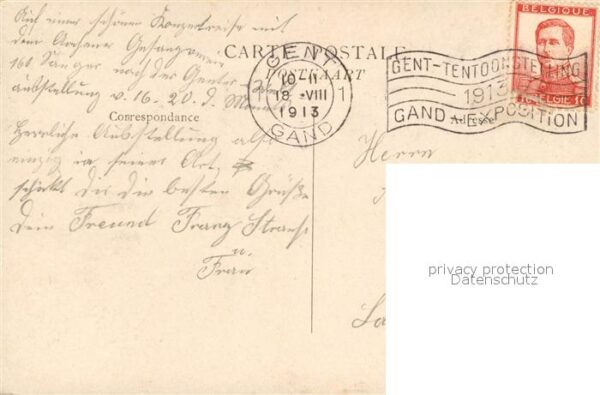 Auf einer schönen Konzertreise mit
dem Aachener Gesangverein
160 Sänger nach der Genter Welt
ausstellung v. 16-20. d. Monats
CARTE POSTALE
POSTKAART
GENT
10-11
18-VIII
1913
GAND
1 1
BELGIQUE
BELGIË
GENT-TENTOONSTELLING
1913
GAND-EXPOSITION
Correspondance
Adresse
Herrliche Ausstellung also
einzig in seiner Art,
schickt dir die besten Grüße
Dein Freund Franz
u.
Frau
Herrn
privacy protection
Datenschutz